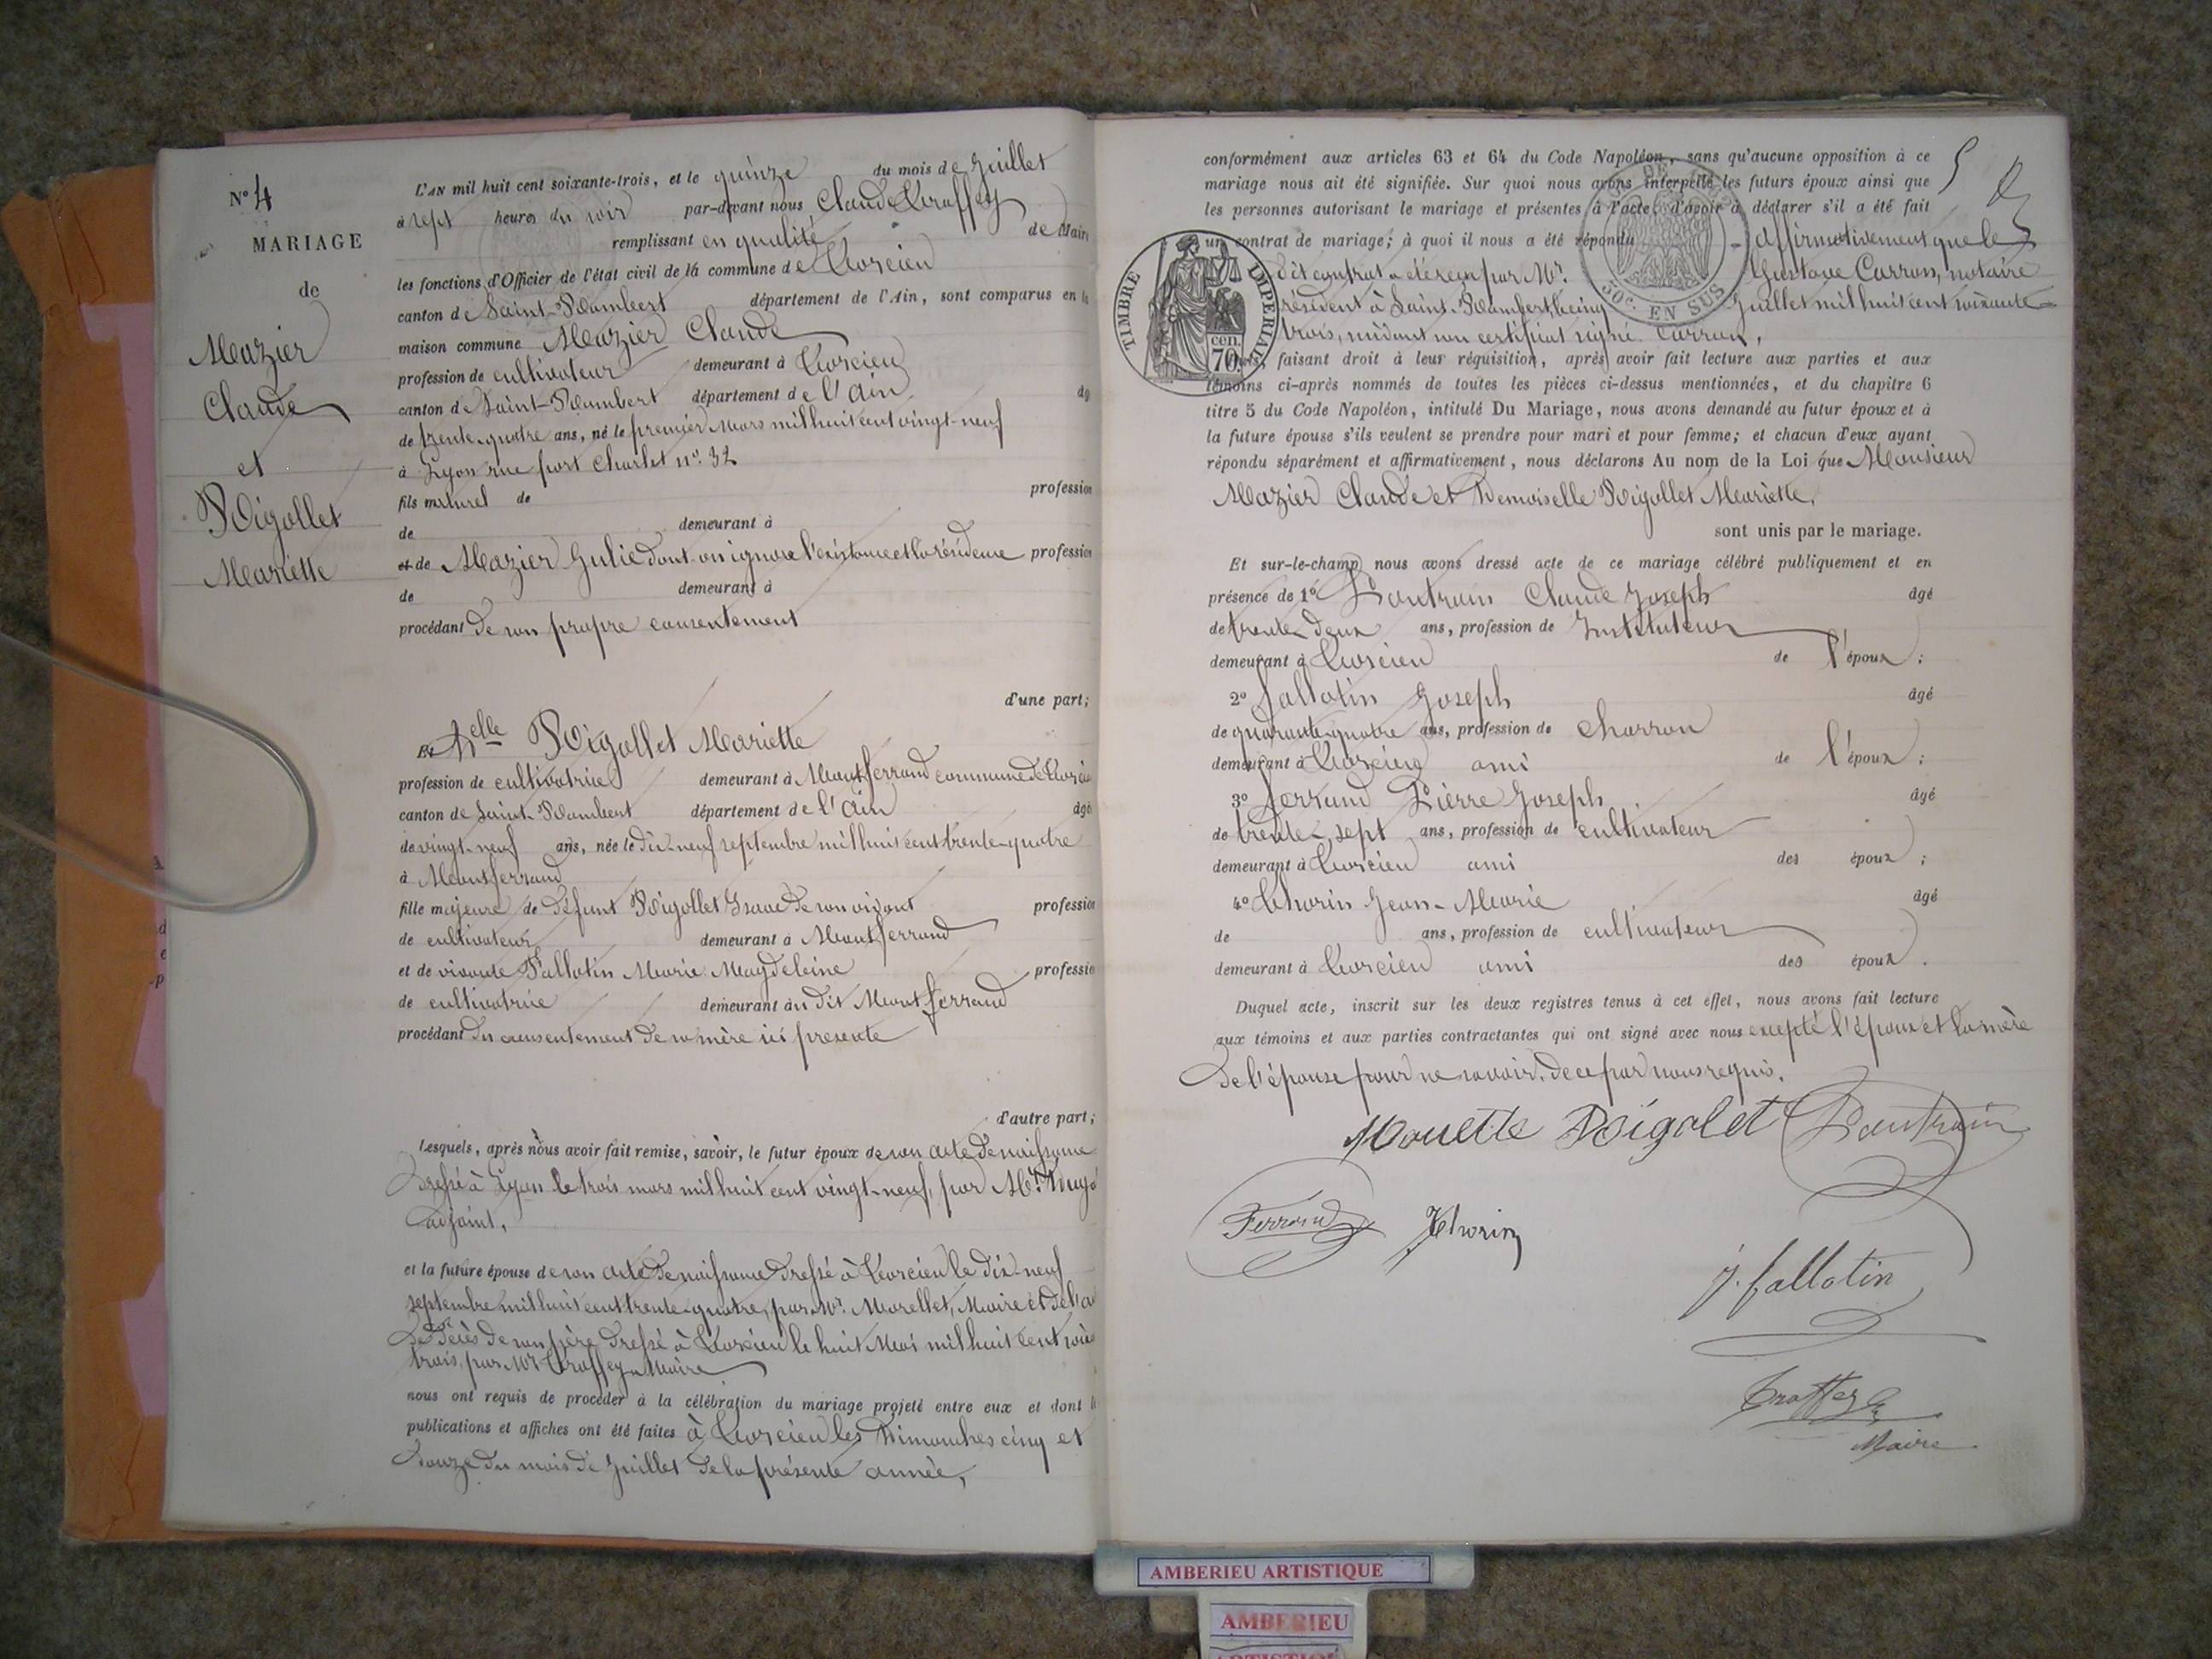 N° 4
MARIAGE
de
Mazier
Claude
et
Rigollet
Mariette
L'AN mil huit cent soixante-trois, et le quinze du mois de Juillet
à sept heures du soir par-devant nous Claude Troffey
remplissant en qualité de Maire
les fonctions d'Officier de l'état civil de la commune de Torcieu
canton de Saint-Rambert département de l'Ain, sont comparus en la
maison commune Mazier Claude
profession de cultivateur demeurant à Torcieu
canton de Saint-Rambert département de l'Ain âgé
de trente-quatre ans, né le premier Mars mil huit cent vingt-neuf
à Lyon rue port Charlet n° 32
fils naturel de profession
de demeurant à
et de Mazier Julie dont on ignore l'existence et la résidence profession
de demeurant à
procédant de son propre consentement
d'une part;
Et Delle Rigollet Mariette
profession de cultivatrice demeurant à Montferrand commune de Torcieu
canton de Saint-Rambert département de l'Ain âgée
de vingt-neuf ans, née le dix-neuf septembre mil huit cent trente-quatre
à Montferrand
fille majeure de défunt Rigollet Isaac de son vivant profession
de cultivateur demeurant à Montferrand
et de vivante Fallotin Marie Magdeleine profession
de cultivatrice demeurant au dit Montferrand
procédant du consentement de sa mère ici présente
d'autre part;
Lesquels, après nous avoir fait remise, savoir, le futur époux de son acte de naissance
dressé à Lyon le trois mars mil huit cent vingt-neuf, par Mr
adjoint,
et la future épouse de son acte de naissance dressé à Torcieu le dix-neuf
septembre mil huit cent trente-quatre, par Mr. Morellet, Maire et de l'a
de décès de son père dressé à Torcieu le huit Mai mil huit cent soix
trois, par Mr Troffey Maire
nous ont requis de procéder à la célébration du mariage projeté entre eux et dont l
publications et affiches ont été faites à Torcieu les Dimanches cinq et
douze du mois de Juillet de la présente année,
conformément aux articles 63 et 64 du Code Napoléon, sans qu'aucune opposition à ce
mariage nous ait été signifiée. Sur quoi nous avons interpellé les futurs époux ainsi que
les personnes autorisant le mariage et présentes à l'acte, d'avoir à déclarer s'il a été fait
un contrat de mariage; à quoi il nous a été répondu affirmativement que le
dit contrat a été reçu par Mr. Gustave Carron, notaire
résident à Saint-Rambert le cinq Juillet mil huit cent soixante-
trois, suivant son certificat signé Carron,
Nous, faisant droit à leur réquisition, après avoir fait lecture aux parties et aux
témoins ci-après nommés de toutes les pièces ci-dessus mentionnées, et du chapitre 6
titre 5 du Code Napoléon, intitulé Du Mariage, nous avons demandé au futur époux et à
la future épouse s'ils veulent se prendre pour mari et pour femme; et chacun d'eux ayant
répondu séparément et affirmativement, nous déclarons Au nom de la Loi que Monsieur
Mazier Claude et Demoiselle Rigollet Mariette,
sont unis par le mariage.
Et sur-le-champ nous avons dressé acte de ce mariage célébré publiquement et en
présence de 1° Pautrain Claude Joseph âgé
de trente-deux ans, profession de Instituteur
demeurant à Torcieu de l'époux;
2° Fallotin Joseph âgé
de quarante-quatre ans, profession de charron
demeurant à Torcieu ami de l'époux;
3° Ferrand Pierre Joseph âgé
de trente-sept ans, profession de cultivateur
demeurant à Torcieu ami des époux;
4° Thorin Jean-Marie âgé
de ans, profession de cultivateur
demeurant à Torcieu ami des époux.
Duquel acte, inscrit sur les deux registres tenus à cet effet, nous avons fait lecture
aux témoins et aux parties contractantes qui ont signé avec nous excepté l'époux et la mère
de l'épouse pour ne savoir, de ce par nous requis.
Mouette Rigolet Pautrain
Ferrand Thorin
J. Fallotin
Troffey
Maire
5
TIMBRE IMPERIAL
70 cen.
50c. EN SUS
AMBERIEU ARTISTIQUE
AMBERIEU
ARTISTIQUE